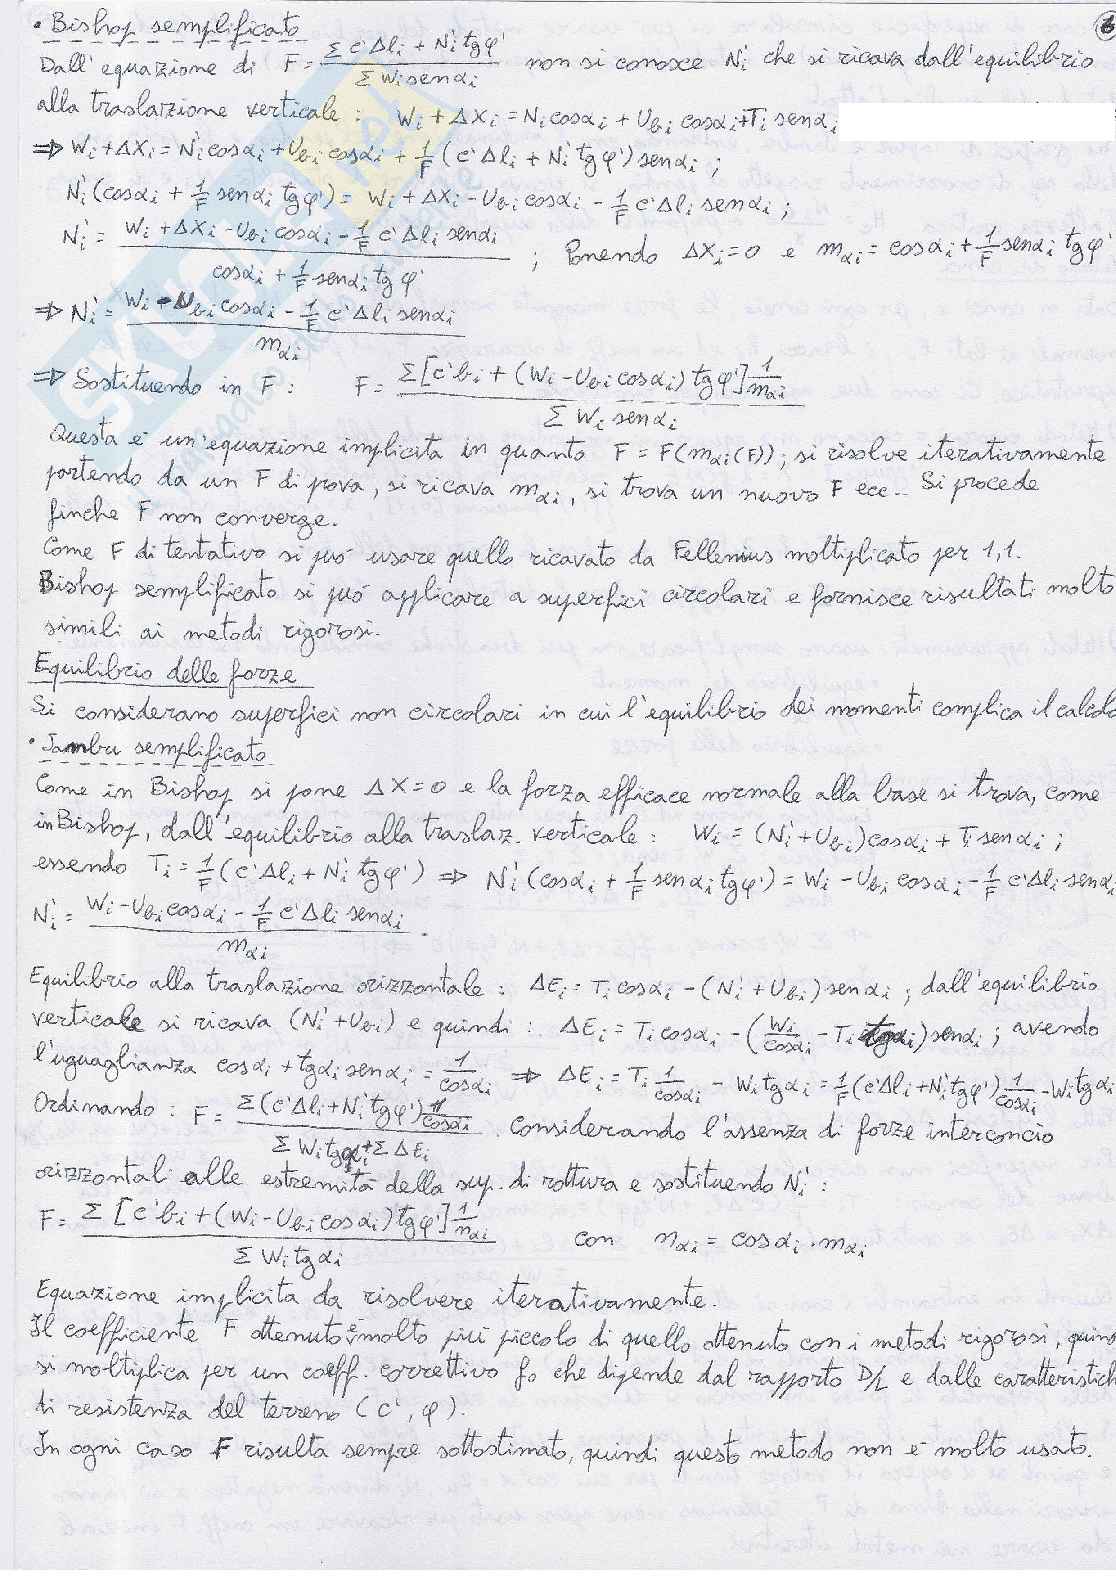 6
• Bishop semplificato
Dall'equazione di F = (Σ c'Δli + Ni' tgφ') / (Σ Wi senαi) non si conosce Ni' che si ricava dall'equilibrio
alla traslazione verticale : Wi + ΔXi = Ni cosαi + Ubi cosαi + Ti senαi
⇒ Wi + ΔXi = Ni' cosαi + Ubi cosαi + 1/F (c'Δli + Ni' tgφ') senαi ;
Ni' (cosαi + 1/F senαi tgφ') = Wi + ΔXi - Ubi cosαi - 1/F c'Δli senαi ;
Ni' = (Wi + ΔXi - Ubi cosαi - 1/F c'Δli senαi) / (cosαi + 1/F senαi tgφ') ; Ponendo ΔXi = 0 e mαi = cosαi + 1/F senαi tgφ'
⇒ Ni' = (Wi - Ubi cosαi - 1/F c'Δli senαi) / mαi
⇒ Sostituendo in F : F = (Σ [c'bi + (Wi - Ubi cosαi) tgφ'] 1/mαi) / (Σ Wi senαi)
Questa è un'equazione implicita in quanto F = F(mαi(F)) ; si risolve iterativamente
partendo da un F di prova, si ricava mαi, si trova un nuovo F ecc.. Si procede
finche F non converge.
Come F di tentativo si può usare quello ricavato da Fellenius moltiplicato per 1,1.
Bishop semplificato si può applicare a superfici circolari e fornisce risultati molto
simili ai metodi rigorosi.
Equilibrio delle forze
Si considerano superfici non circolari in cui l'equilibrio dei momenti complica il calcolo
• Jambu semplificato
Come in Bishop si pone ΔX = 0 e la forza efficace normale alla base si trova, come
in Bishop, dall'equilibrio alla traslaz. verticale : Wi = (Ni' + Ubi) cosαi + Ti senαi ;
essendo Ti = 1/F (c'Δli + Ni' tgφ') ⇒ Ni' (cosαi + 1/F senαi tgφ') = Wi - Ubi cosαi - 1/F c'Δli senαi
Ni' = (Wi - Ubi cosαi - 1/F c'Δli senαi) / mαi .
Equilibrio alla traslazione orizzontale : ΔEi = Ti cosαi - (Ni' + Ubi) senαi ; dall'equilibrio
verticale si ricava (Ni' + Ubi) e quindi : ΔEi = Ti cosαi - (Wi/cosαi - Ti tgαi) senαi ; avendo
l'uguaglianza cosαi + tgαi senαi = 1/cosαi ⇒ ΔEi = Ti 1/cosαi - Wi tgαi = 1/F (c'Δli + Ni' tgφ') 1/cosαi - Wi tgαi
Ordinando : F = (Σ (c'Δli + Ni' tgφ') 1/cosαi) / (Σ Wi tgαi + Σ ΔEi) . Considerando l'assenza di forze interconcio
orizzontali alle estremità della sup. di rottura e sostituendo Ni' :
F = (Σ [c'bi + (Wi - Ubi cosαi) tgφ'] 1/nαi) / (Σ Wi tgαi) con nαi = cosαi · mαi
Equazione implicita da risolvere iterativamente.
Il coefficiente F ottenuto è molto più piccolo di quello ottenuto con i metodi rigorosi, quind
si moltiplica per un coeff. correttivo fo che dipende dal rapporto D/L e dalle caratteristich
di resistenza del terreno (c', φ).
In ogni caso F risulta sempre sottostimato, quindi questo metodo non è molto usato.